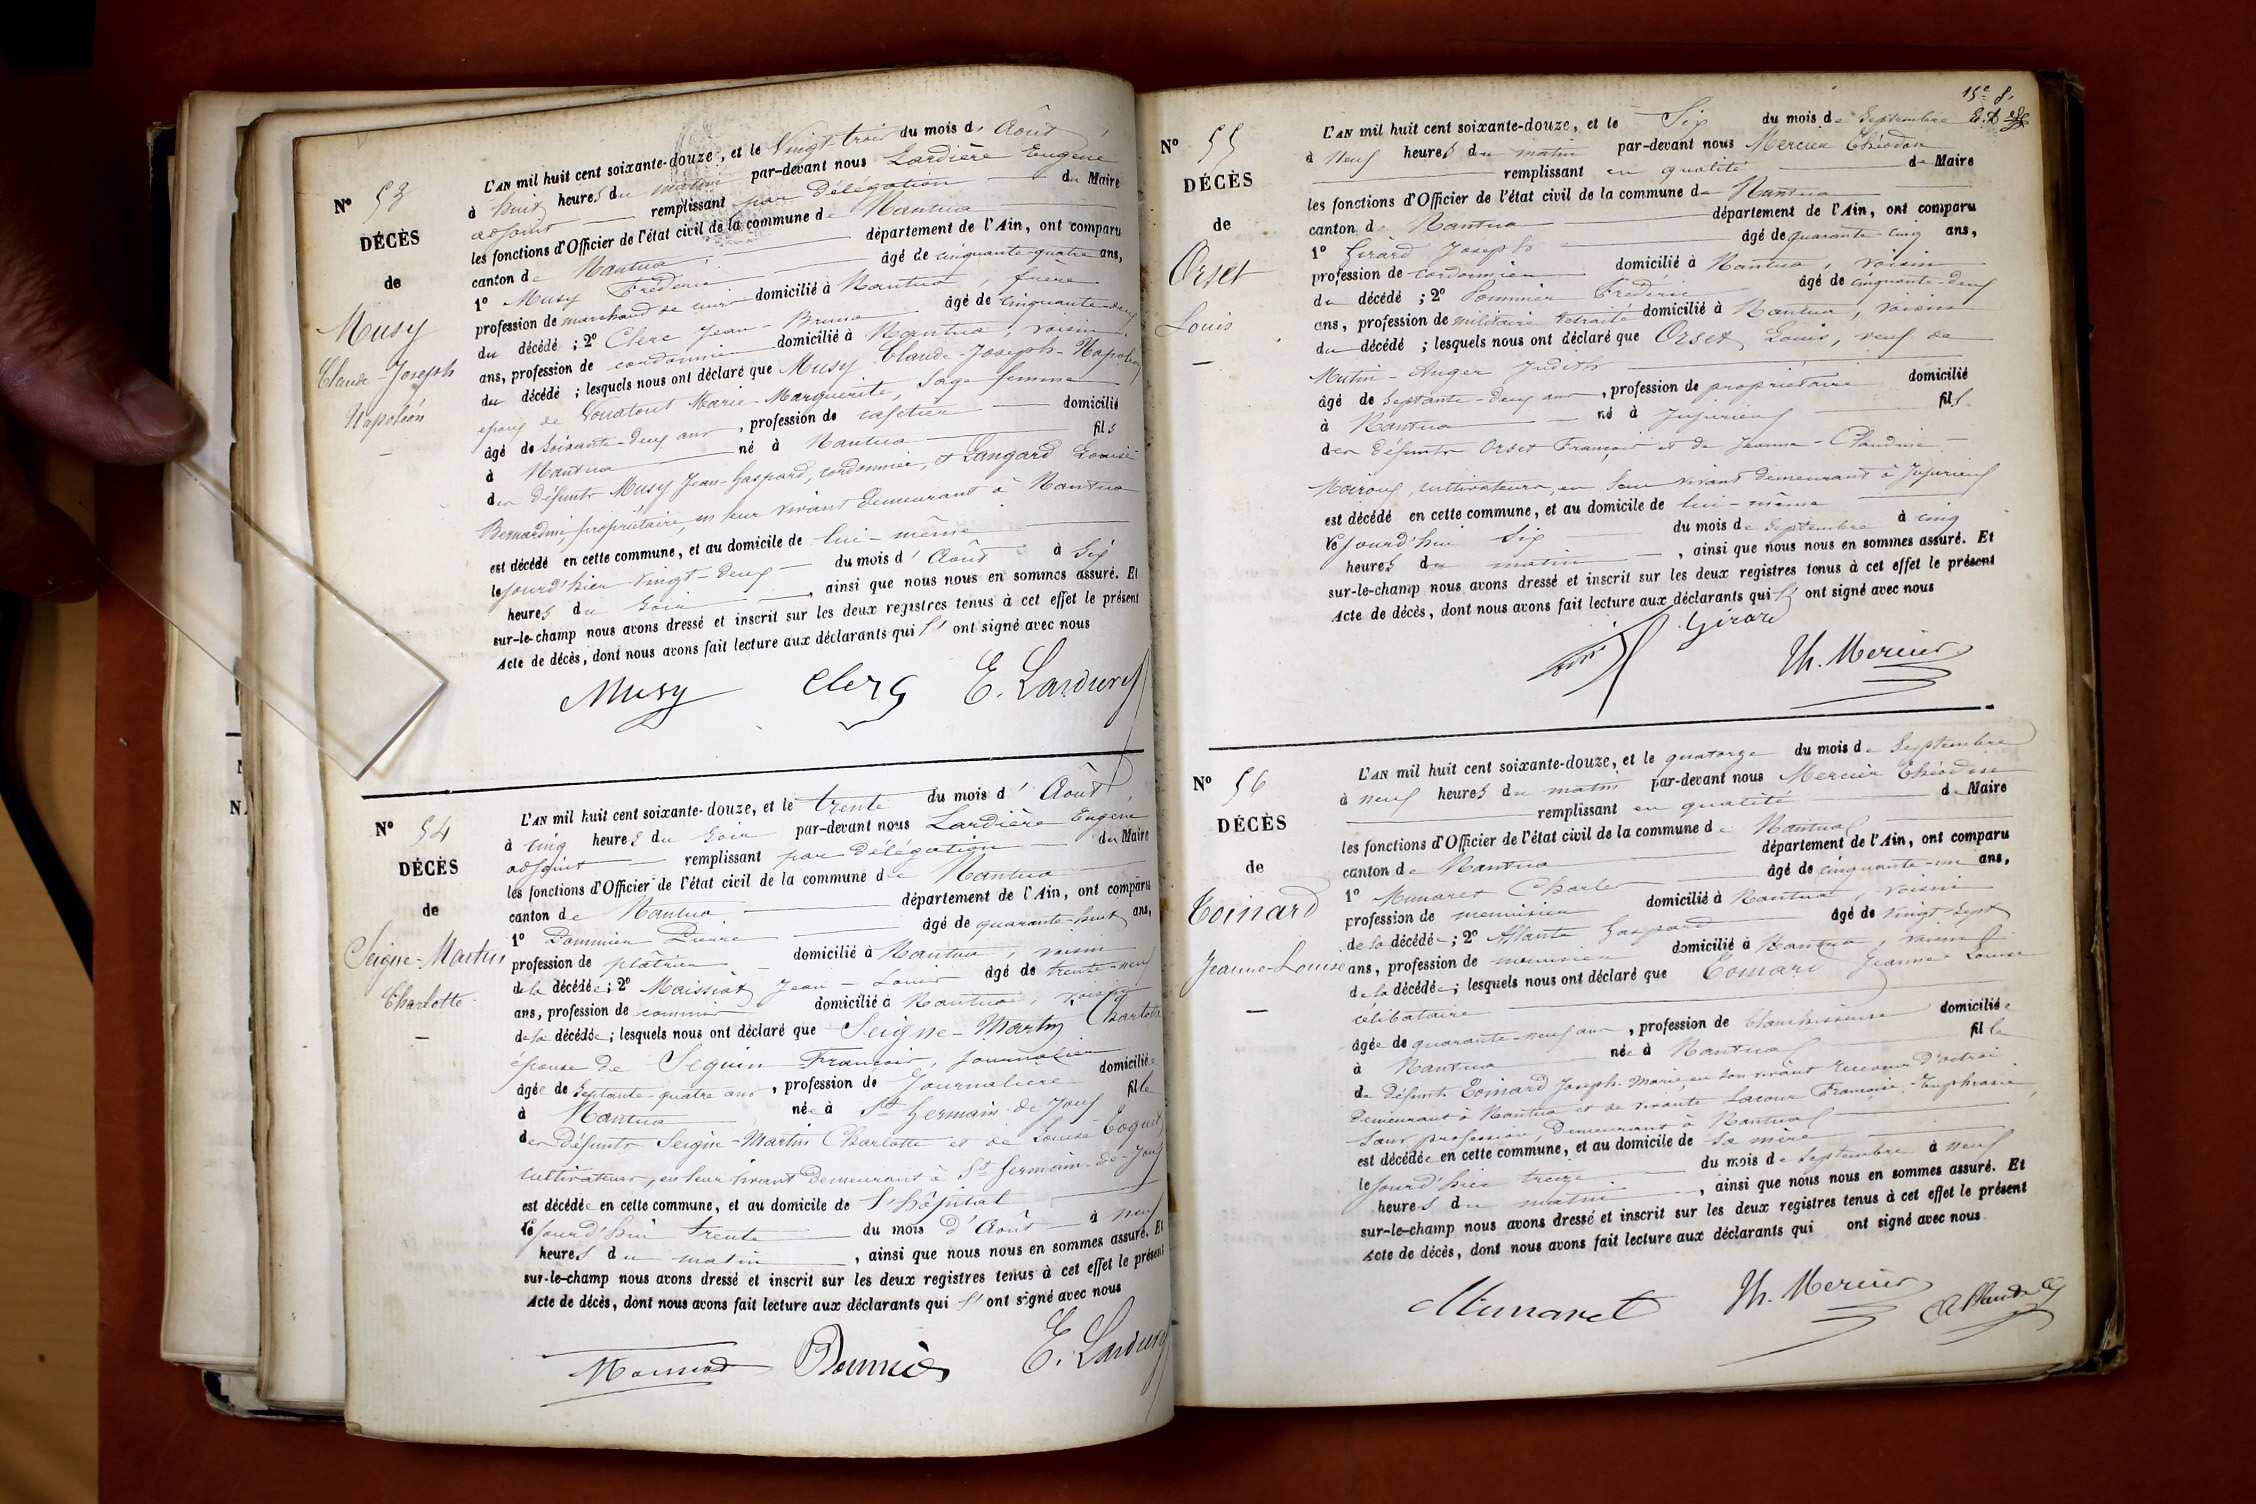 N° 53
DÉCÈS
de
Musy
Claude-Joseph
Napoléon
L'AN mil huit cent soixante-douze, et le Vingt trois du mois d' Août
à huit heures du matin par-devant nous Lardière Eugène
adjoint remplissant par délégation du Maire
les fonctions d'Officier de l'état civil de la commune de Nantua
canton de Nantua département de l'Ain, ont comparu
1° Musy Frédéric âgé de cinquante-quatre ans,
profession de marchand de cuir domicilié à Nantua, frère
du décédé ; 2° Clerc Jean-Bruno âgé de cinquante-deux
ans, profession de cordonnier domicilié à Nantua, voisin
du décédé ; lesquels nous ont déclaré que Musy Claude-Joseph-Napoléon
époux de Marie-Marguerite, sage femme
âgé de soixante-deux ans, profession de cafetier domicilié
à Nantua né à Nantua fils
des défunts Musy Jean-Gaspard, cordonnier, et Langard Louise
Bernardine, propriétaire, en leur vivant demeurant à Nantua
est décédé en cette commune, et au domicile de lui-même
le jourd'hier vingt-deux du mois d' Août à six
heures du soir, ainsi que nous nous en sommes assuré. Et
sur-le-champ nous avons dressé et inscrit sur les deux registres tenus à cet effet le présent
Acte de décès, dont nous avons fait lecture aux déclarants qui ont signé avec nous
Musy Clerc E. Lardière
N° 54
DÉCÈS
de
Seigne-Martin
Charlotte
L'AN mil huit cent soixante-douze, et le trente du mois d' Août
à cinq heures du soir par-devant nous Lardière Eugène
adjoint remplissant par délégation du Maire
les fonctions d'Officier de l'état civil de la commune de Nantua
canton de Nantua département de l'Ain, ont comparu
1° Pommier Pierre âgé de quarante-huit ans,
profession de plâtrier domicilié à Nantua, voisin
de la décédée ; 2° Maissiat Jean-Louis âgé de trente-neuf
ans, profession de commis domicilié à Nantua, voisin
de la décédée ; lesquels nous ont déclaré que Seigne-Martin Charlotte
épouse de Seguin François, journalier
âgée de septante-quatre ans, profession de Journalière domiciliée
à Nantua née à St Germain-de-Joux fille
des défunts Seigne-Martin Charlotte et de Louise
cultivateurs, en leur vivant demeurant à St Germain-de-Joux
est décédée en cette commune, et au domicile de l'hôpital
le jourd'hui trente du mois d'Août à neuf
heures du matin, ainsi que nous nous en sommes assuré. Et
sur-le-champ nous avons dressé et inscrit sur les deux registres tenus à cet effet le présent
Acte de décès, dont nous avons fait lecture aux déclarants qui ont signé avec nous
Maissiat Pommier E. Lardière
15e f.
N° 55
DÉCÈS
de
Orset
Louis
L'AN mil huit cent soixante-douze, et le Six du mois de Septembre
à neuf heures du matin par-devant nous Mercier Théodore
remplissant en qualité de Maire
les fonctions d'Officier de l'état civil de la commune de Nantua
canton de Nantua département de l'Ain, ont comparu
1° Girard Joseph âgé de quarante-cinq ans,
profession de cordonnier domicilié à Nantua, voisin
du décédé ; 2° Pommier Frédéric âgé de cinquante-deux
ans, profession de militaire retraité domicilié à Nantua, voisin
du décédé ; lesquels nous ont déclaré que Orset Louis, veuf de
Mutin-Auger Judith
âgé de septante-deux ans, profession de propriétaire domicilié
à Nantua né à Jujurieux fils
des défunts Orset François et de Jeanne-Claudine
cultivateurs, en leur vivant demeurant à Jujurieux
est décédé en cette commune, et au domicile de lui-même
le jourd'hui six du mois de Septembre à cinq
heures du matin, ainsi que nous nous en sommes assuré. Et
sur-le-champ nous avons dressé et inscrit sur les deux registres tenus à cet effet le présent
Acte de décès, dont nous avons fait lecture aux déclarants qui ont signé avec nous
Girard
Th. Mercier
N° 56
DÉCÈS
de
Coinard
Jeanne-Louise
L'AN mil huit cent soixante-douze, et le quatorze du mois de Septembre
à neuf heures du matin par-devant nous Mercier Théodore
remplissant en qualité de Maire
les fonctions d'Officier de l'état civil de la commune de Nantua
canton de Nantua département de l'Ain, ont comparu
1° Munaret Charles âgé de cinquante-un ans,
profession de menuisier domicilié à Nantua, voisin
de la décédée ; 2° Allante Gaspard âgé de vingt-sept
ans, profession de menuisier domicilié à Nantua, voisin
de la décédée ; lesquels nous ont déclaré que Coinard Jeanne-Louise
célibataire
âgée de quarante-neuf ans, profession de blanchisseuse domiciliée
à Nantua née à Nantua fille
de défunt Coinard Joseph-Marie, en son vivant receveur d'octroi
demeurant à Nantua et de vivante Lacour Françoise-Euphrasie
sans profession, demeurant à Nantua
est décédée en cette commune, et au domicile de sa mère
le jourd'hier treize du mois de Septembre à neuf
heures du matin, ainsi que nous nous en sommes assuré. Et
sur-le-champ nous avons dressé et inscrit sur les deux registres tenus à cet effet le présent
Acte de décès, dont nous avons fait lecture aux déclarants qui ont signé avec nous
Munaret Th. Mercier